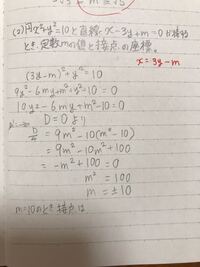 (2)円x²+y²=10と直線x-3y+m=0が接する
とき、定数mの値と接点の座標。
x=3y-m
(3y-m)²+y²=10
9y²-6my+m²+y²-10=0
10y²-6my+m²-10=0
D=0より
D/4=9m²-10(m²-10)
=9m²-10m²+100
=-m²+100=0
m²=100
m=±10
m=10のとき接点は